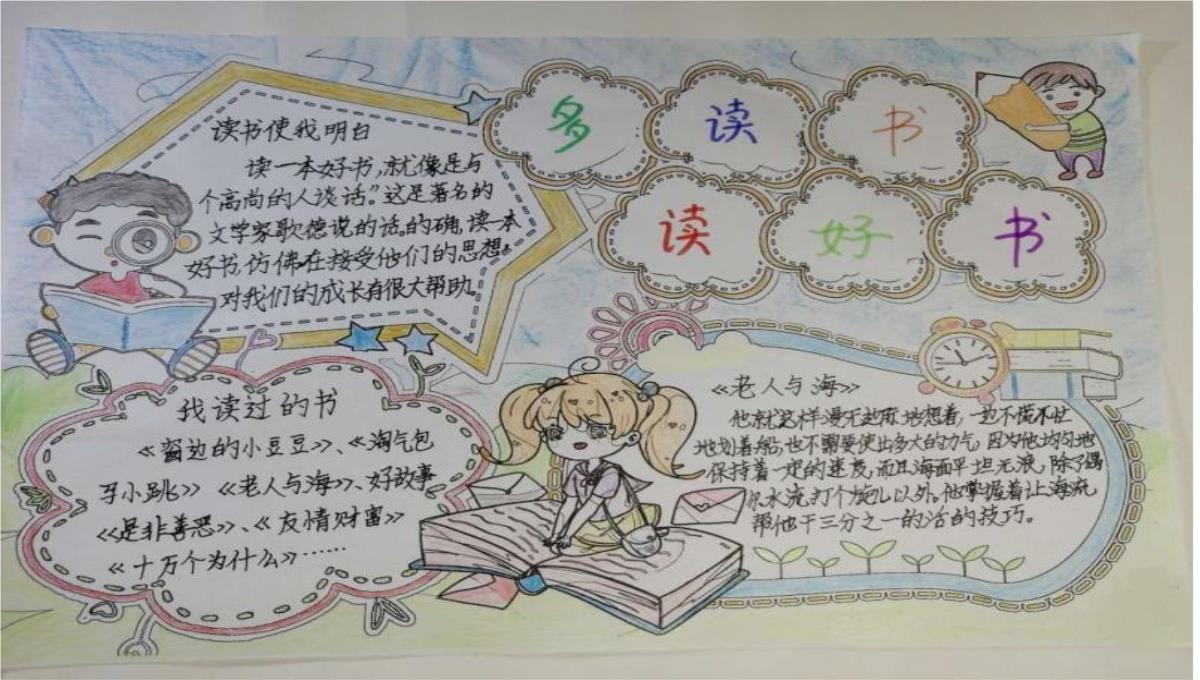 多读书
读好书
读书使我明白
读一本好书,就像是与
个高尚的人谈话”。这是著名的
文学家歌德说的话。的确,读一本
好书,仿佛在接受他们的思想,
对我们的成长有很大帮助。
我读过的书
《窗边的小豆豆》、《淘气包
马小跳》《老人与海》、好故事
《是非善恶》、《友情财富》
《十万个为什么》……
《老人与海》
他就这样漫无边际地想着,一边不慌不忙
地划着船,也不需要使出多大的力气,因为他均匀地
保持着一定的速度,而且海面平坦无浪,除了偶
尔水流打个旋儿以外。他掌握着让海流
帮他干三分之一的活的技巧。